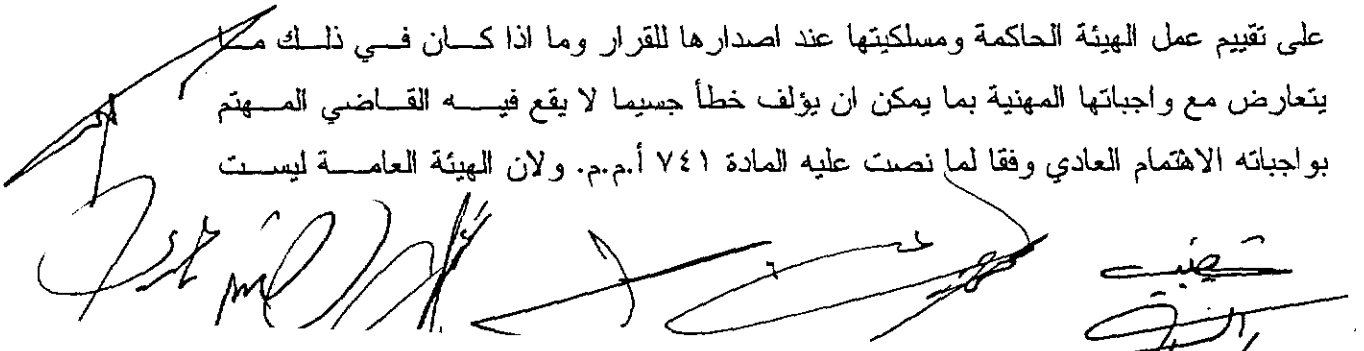 على تقييم عمل الهيئة الحاكمة ومسلكيتها عند اصدارها للقرار وما اذا كان في ذلك ما
يتعارض مع واجباتها المهنية بما يمكن ان يؤلف خطأ جسيما لا يقع فيه القاضي المهتم
بواجباته الاهتمام العادي وفقا لما نصت عليه المادة ٧٤١ أ.م.م. ولان الهيئة العامة ليست